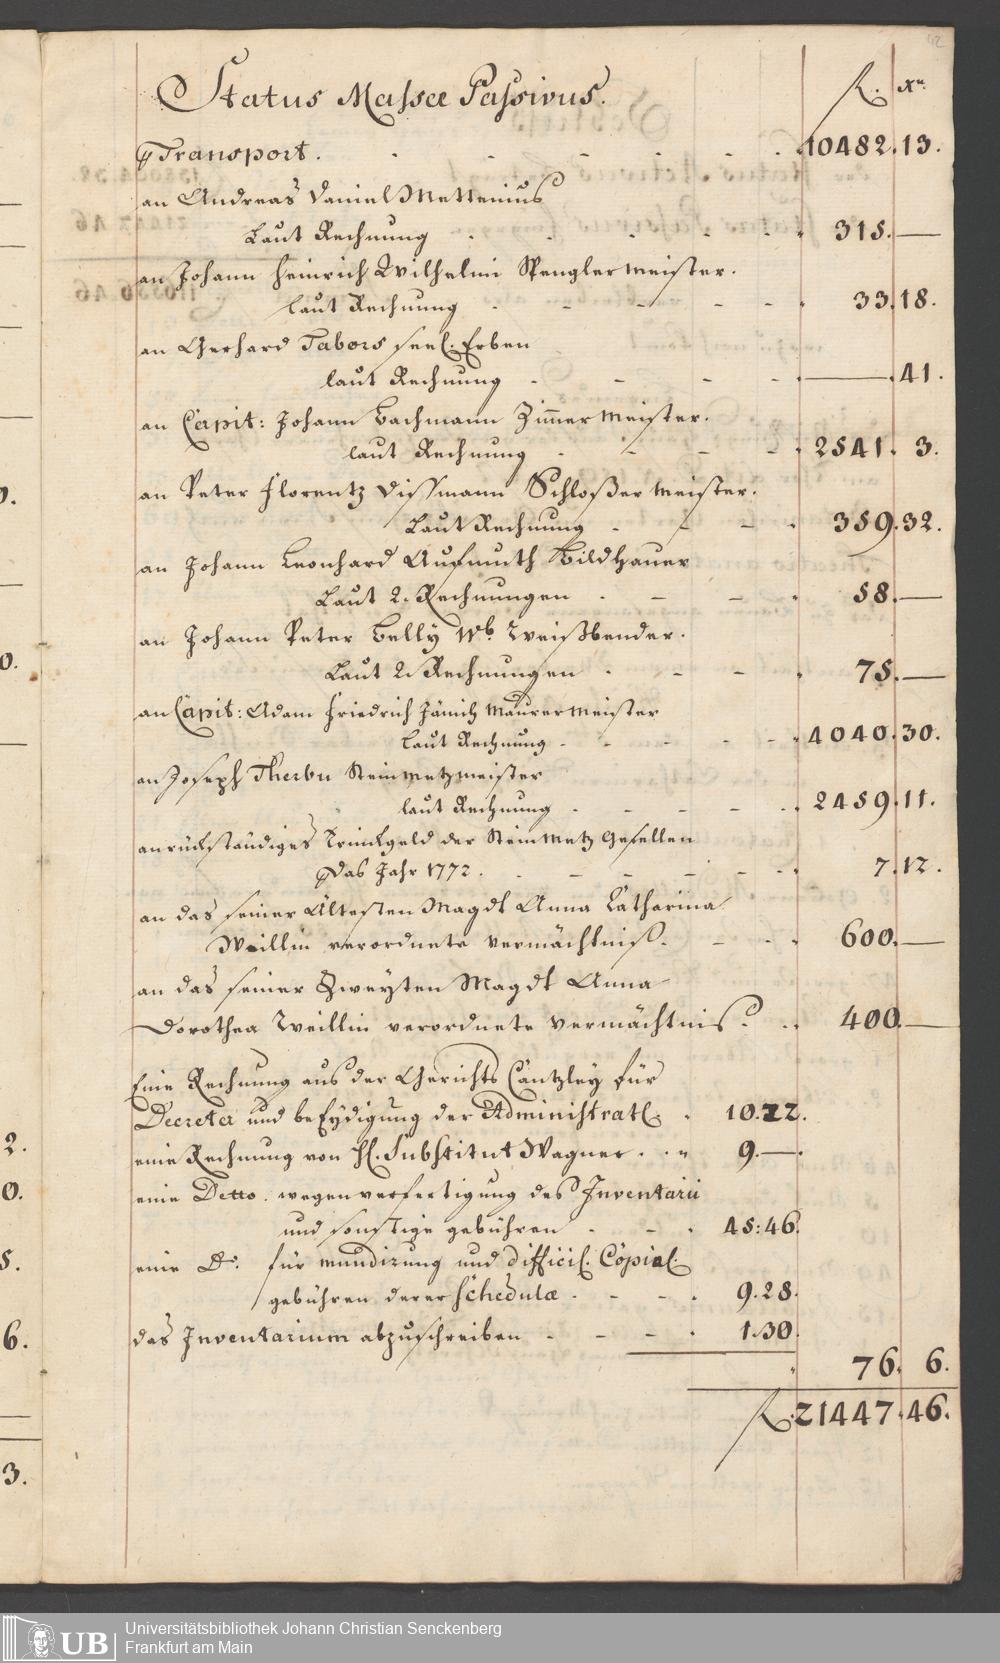 Status Massæ Passivus.
R. Xr.
Transport. 10482. 13.
an Andreas Daniel Mettenius
Laut Rechnung 315. —
an Johann Heinrich Wilhelmi Spenglermeister.
laut Rechnung 33. 18.
an Gerhard Tabors seel. Erben
laut Rechnung — . 41.
an Capit: Johann Bachmann Zim̅ermeister.
laut Rechnung 2541. 3.
an Peter Florentz Dissmann Schloßermeister.
Laut Rechnung 359. 32.
an Johann Leonhard Aufmuth Bildhauer
Laut 2. Rechnungen 58. —
an Johann Peter Belly Wb. Weißbender.
Laut 2. Rechnungen 75. —
an Capit: Adam Friedrich Jänich Maurermeister
laut Rechnung 4040. 30.
an Joseph Therbu Steinmetzmeister
laut Rechnung 2459. 11.
an rückständiges Trinckgeld der Steinmetz Gesellen
das Jahr 1772. 7. 12.
an das seiner Ältesten Magdt Anna Catharina
Weillin verordnete Vermächtniß. 600. —
an das seiner Zweyten Magdt Anna
Dorothea Weillin verordnete Vermächtnis. 400. —
Eine Rechnung aus der Gerichts Cantzley für
Decreta und beEydigung der Administrat. 10.22.
eine Rechnung von H. Substitut Wagner. 9. —.
eine Detto. wegen verfertigung des Inventarii
und sonstige gebühren 45:46.
eine Do. für mundirung und difficil. Copial.
gebühren derer Schedulæ 9.28.
das Inventarium abzuschreiben 1.30.
76. 6.
R. 21447. 46.
0.
0.
2.
0.
5.
6.
3.
UB
Universitätsbibliothek Johann Christian Senckenberg
Frankfurt am Main